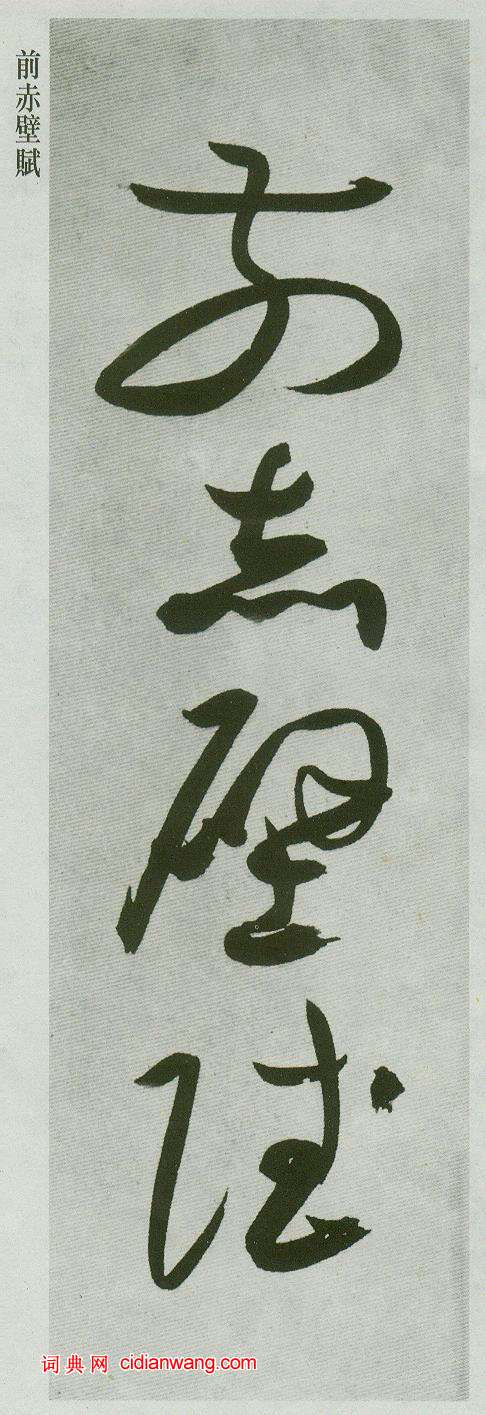 前赤壁賦
前赤壁賦
词典网 cidianwang.com